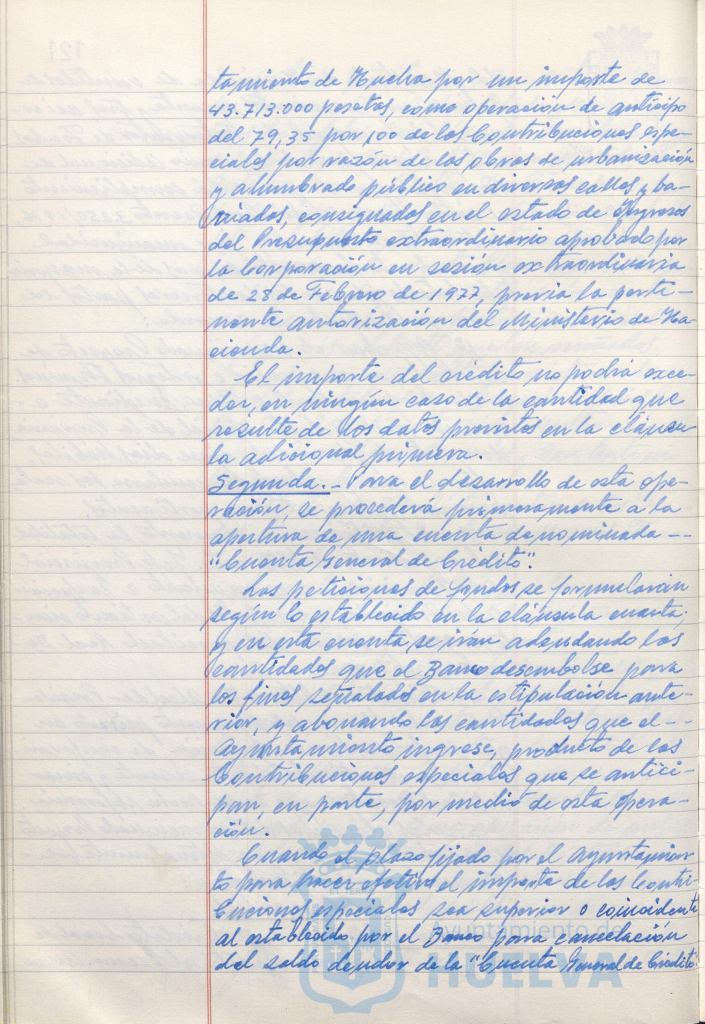 tamiento de Huelva por un importe de
43.713.000 pesetas, como operación de anticipo
del 79,35 por 100 de las Contribuciones espe-
ciales por razón de las obras de urbanización
y alumbrado público en diversas calles y ba-
rriadas, consignados en el estado de Ingresos
del Presupuesto extraordinario aprobado por
la Corporación en sesión extraordinaria
de 28 de Febrero de 1977, previa la perti-
nente autorización del Ministerio de Ha-
cienda.
El importe del crédito no podrá exce-
der, en ningún caso de la cantidad que
resulte de los datos previstos en la cláusu-
la adicional primera.
Segunda.- Para el desarrollo de esta ope-
ración, se procederá primeramente a la
apertura de una cuenta denominada --
"Cuenta General de Crédito".
Las peticiones de fondos se formularán
según lo establecido en la cláusula cuarta;
y en esta cuenta se irán adeudando las
cantidades que el Banco desembolse para
los fines señalados en la estipulación ante-
rior, y abonando las cantidades que el --
Ayuntamiento ingrese, producto de las
Contribuciones especiales que se antici-
pan, en parte, por medio de esta opera-
ción.
Cuando el plazo fijado por el Ayuntamien-
to para hacer efectivo el importe de las Contri-
buciones especiales sea superior o coincidente
al establecido por el Banco para cancelación
del saldo deudor de la "Cuenta General de Crédito"
Ayuntamiento de
HUELVA